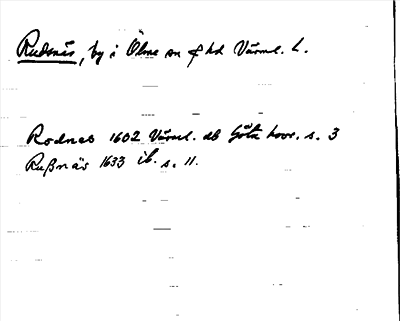 Rudsnäs, by i Ölme sn o hd Värml. L.
Rodnes 1602 Värml. db Göta hovr. s. 3
Rußnäs 1633 ib. s. 11.